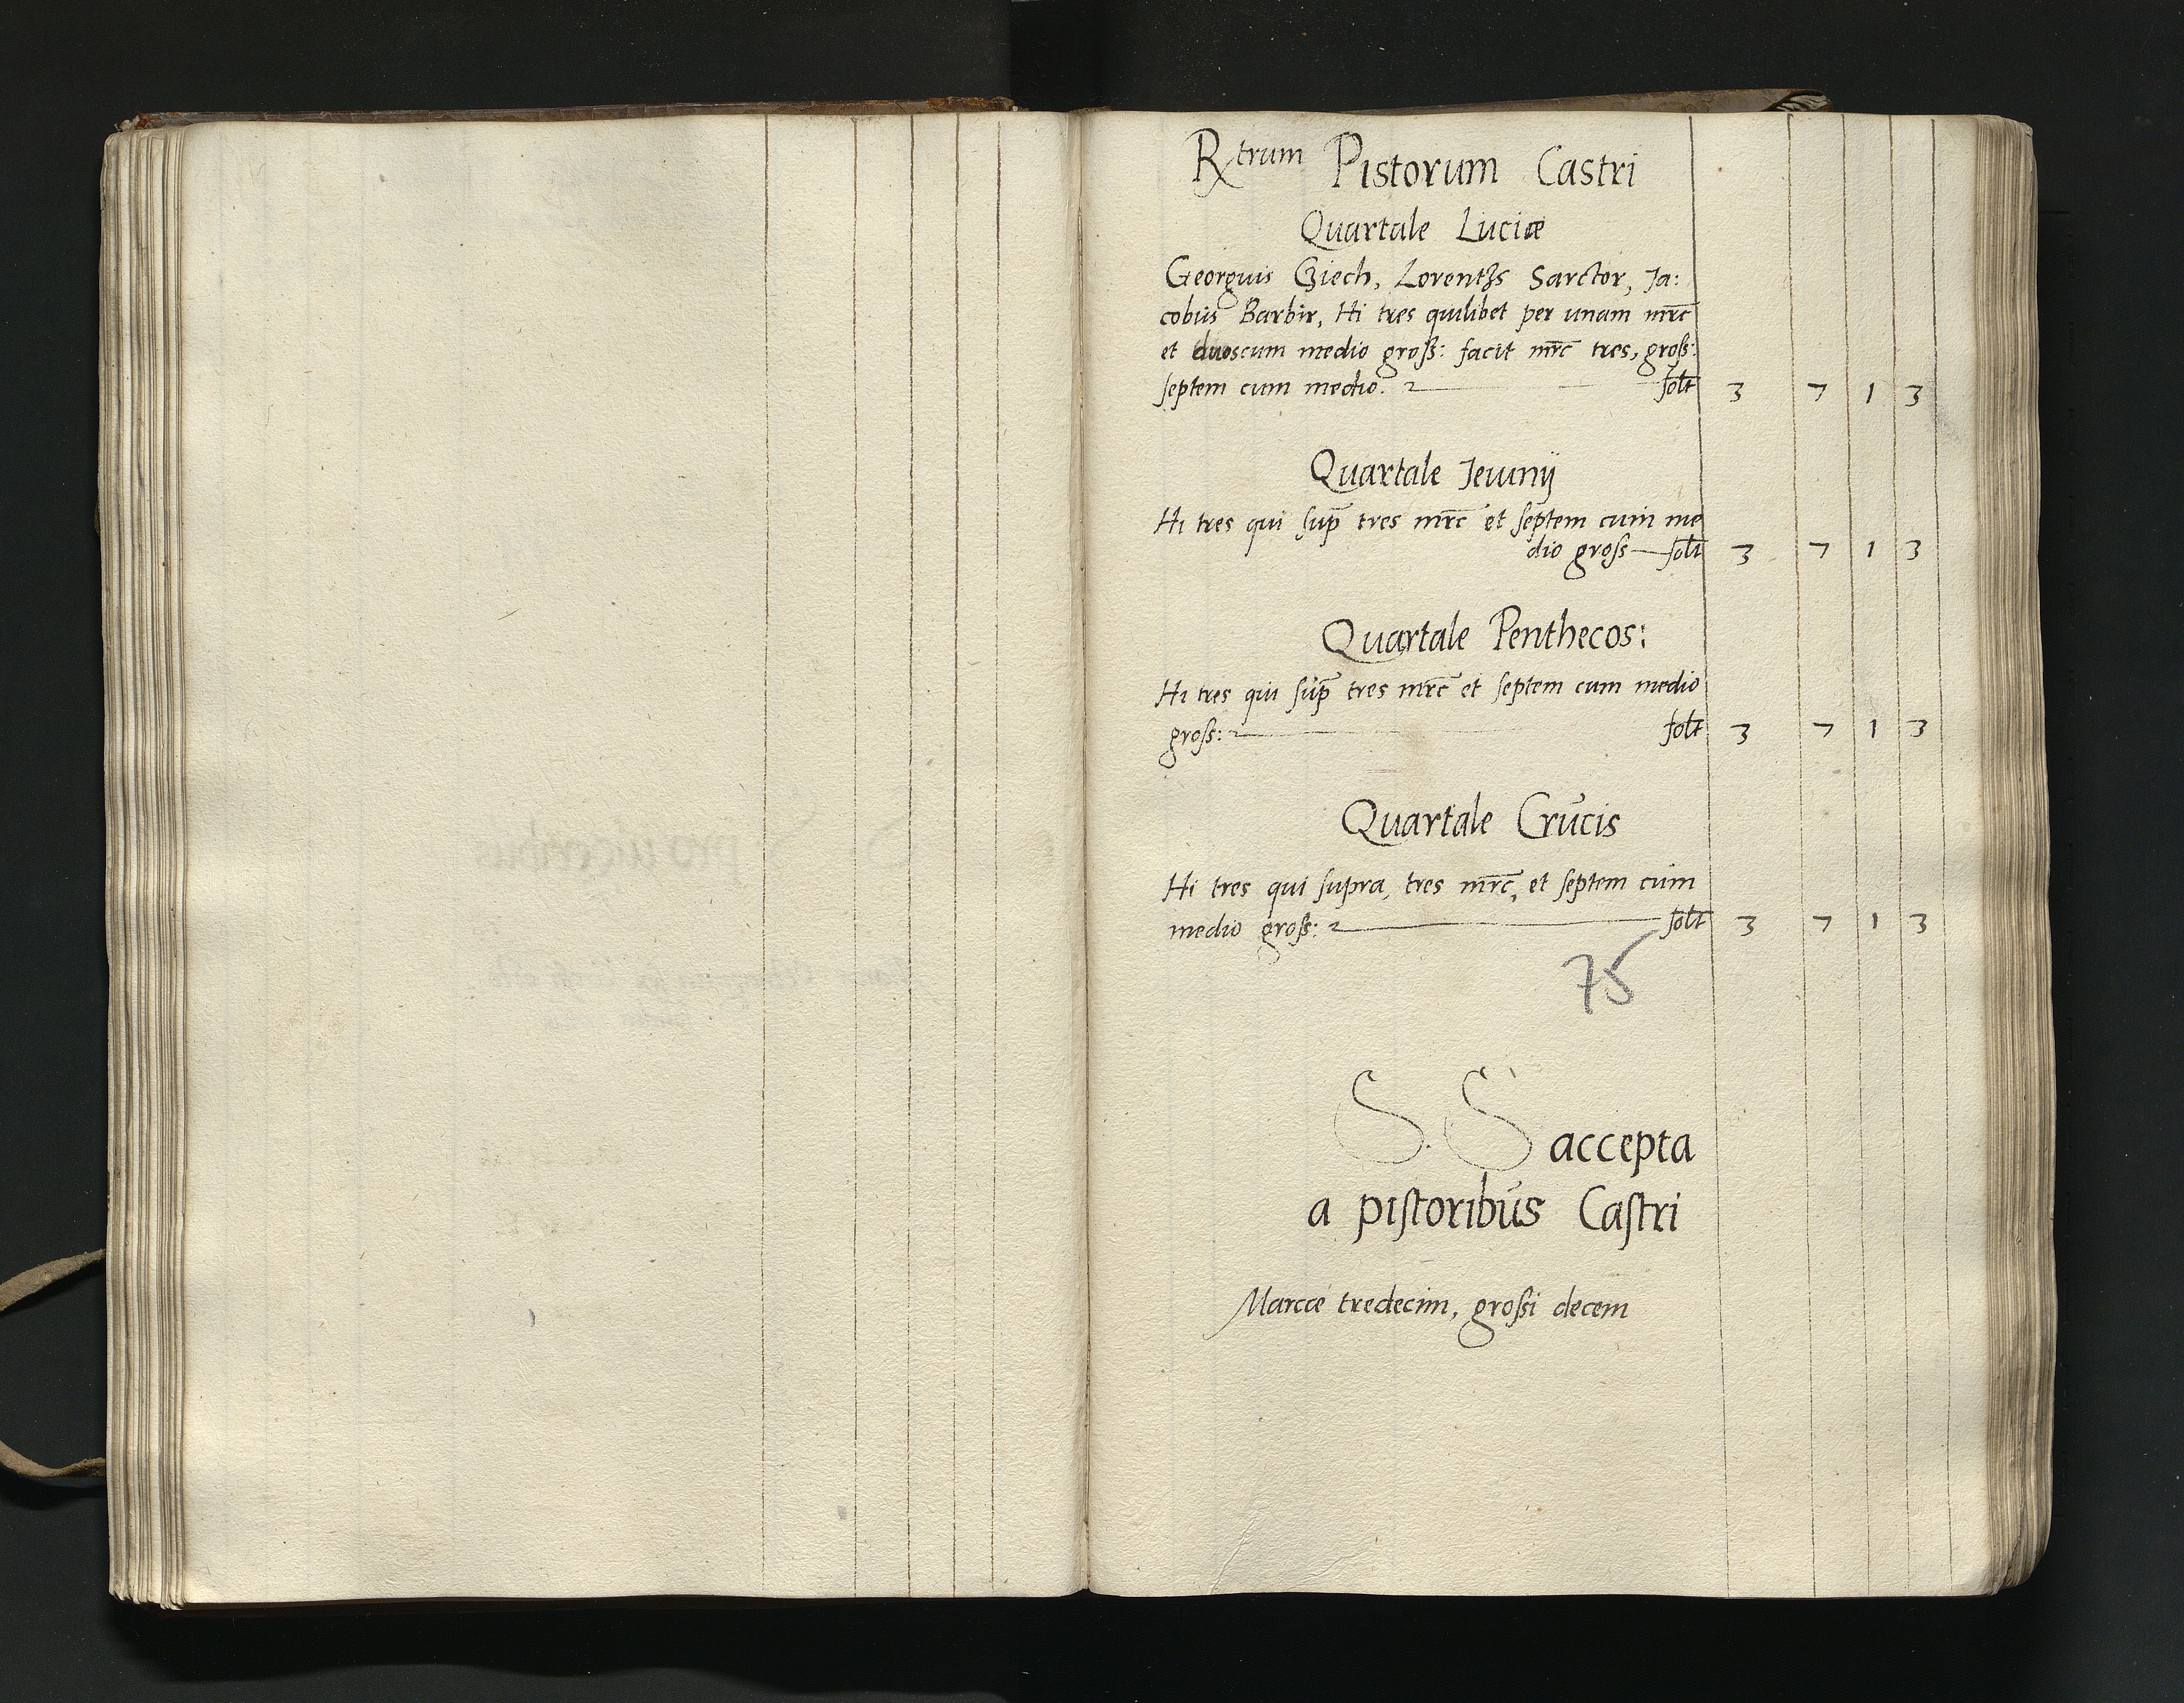 Rtrum Pistorum Castri
Quartale Luciæ
Georguis Giech, Lorentzs Sarctor, Ja:
cobus Barbir, Hi tres quilibet per unam mrc̄
et duoscum medio groß: facit mrc̄ tres, groß:
septem cum medio. solt 3 7 1 3
Quartale Jeiunÿ
Hi tres qui sup̄ tres mrc̄ et septem cum me
dio gross solt 3 7 1 3
Quartale Penthecos:
Hi tres qui sup̄ tres mrc̄ et septem cum medio
gross: solt 3 7 1 3
Quartale Crucis
Hi tres qui supra, tres mrc̄, et septem cum
medio groß: solt 3 7 1 3
75
S. S accepta
a pistoribus Castri
Marcæ tredecim, grossi decem